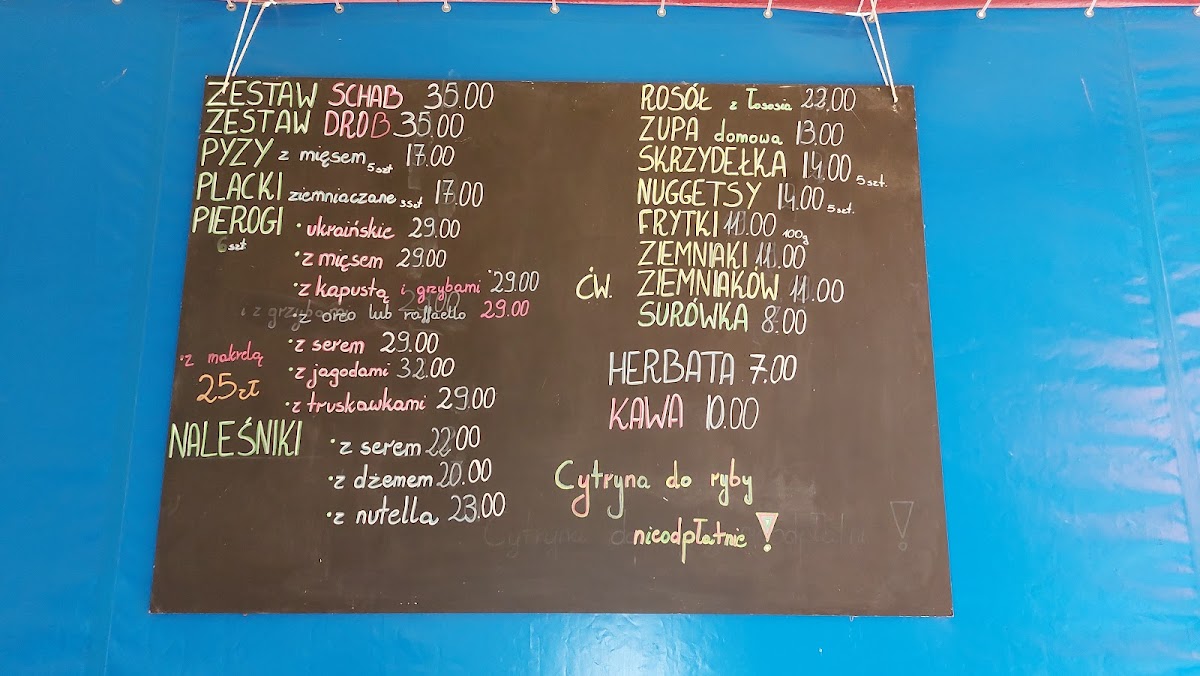 ZESTAW SCHAB 35.00
ZESTAW DROB 35.00
PYZY z mięsem 5szt 17.00
PLACKI ziemniaczane 3szt 17.00
PIEROGI • ukraińskie 29.00
6szt
• z mięsem 29.00
• z kapustą i grzybami 29.00
i z grzybami
• z oreo lub raffaello 29.00
• z serem 29.00
• z makrelą
25zł
• z jagodami 32.00
• z truskawkami 29.00
NALEŚNIKI • z serem 22.00
• z dżemem 20.00
• z nutella 23.00
ROSÓŁ z łososia 22.00
ZUPA domowa 13.00
SKRZYDEŁKA 14.00 5szt.
NUGGETSY 14.00 5szt.
FRYTKI 11.00 100g
ZIEMNIAKI 11.00
ĆW. ZIEMNIAKÓW 11.00
SURÓWKA 8.00
HERBATA 7.00
KAWA 10.00
Cytryna do ryby
nieodpłatnie !